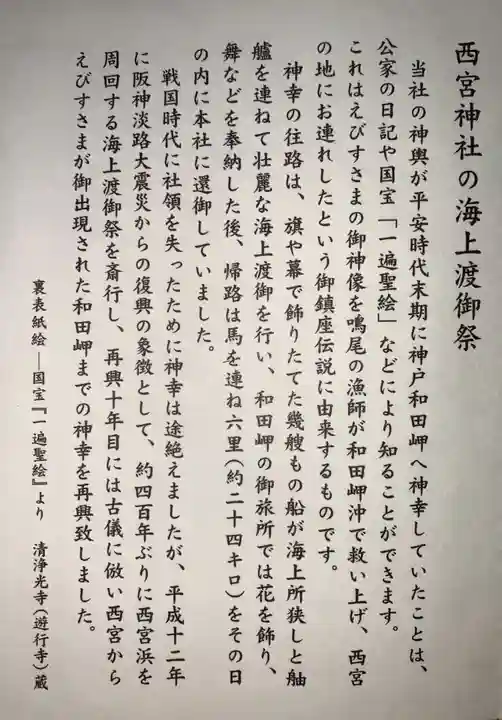 西宮神社の海上渡御祭
当社の神輿が平安時代末期に神戸和田岬へ神幸していたことは、
公家の日記や国宝「一遍聖絵」などにより知ることができます。
これはえびすさまの御神像を鳴尾の漁師が和田岬沖で救い上げ、西宮
の地にお連れしたという御鎮座伝説に由来するものです。
神幸の往路は、旗や幕で飾りたてた幾艘もの船が海上所狭しと舳
艫を連ねて壮麗な海上渡御を行い、和田岬の御旅所では花を飾り、
舞などを奉納した後、帰路は馬を連ね六里(約二十四キロ)をその日
の内に本社に還御していました。
戦国時代に社領を失ったために神幸は途絶えましたが、平成十二年
に阪神淡路大震災からの復興の象徴として、約四百年ぶりに西宮浜を
周回する海上渡御祭を斎行し、再興十年目には古儀に倣い西宮から
えびすさまが御出現された和田岬までの神幸を再興致しました。
裏表紙絵―国宝『一遍聖絵』より 清浄光寺(遊行寺)蔵